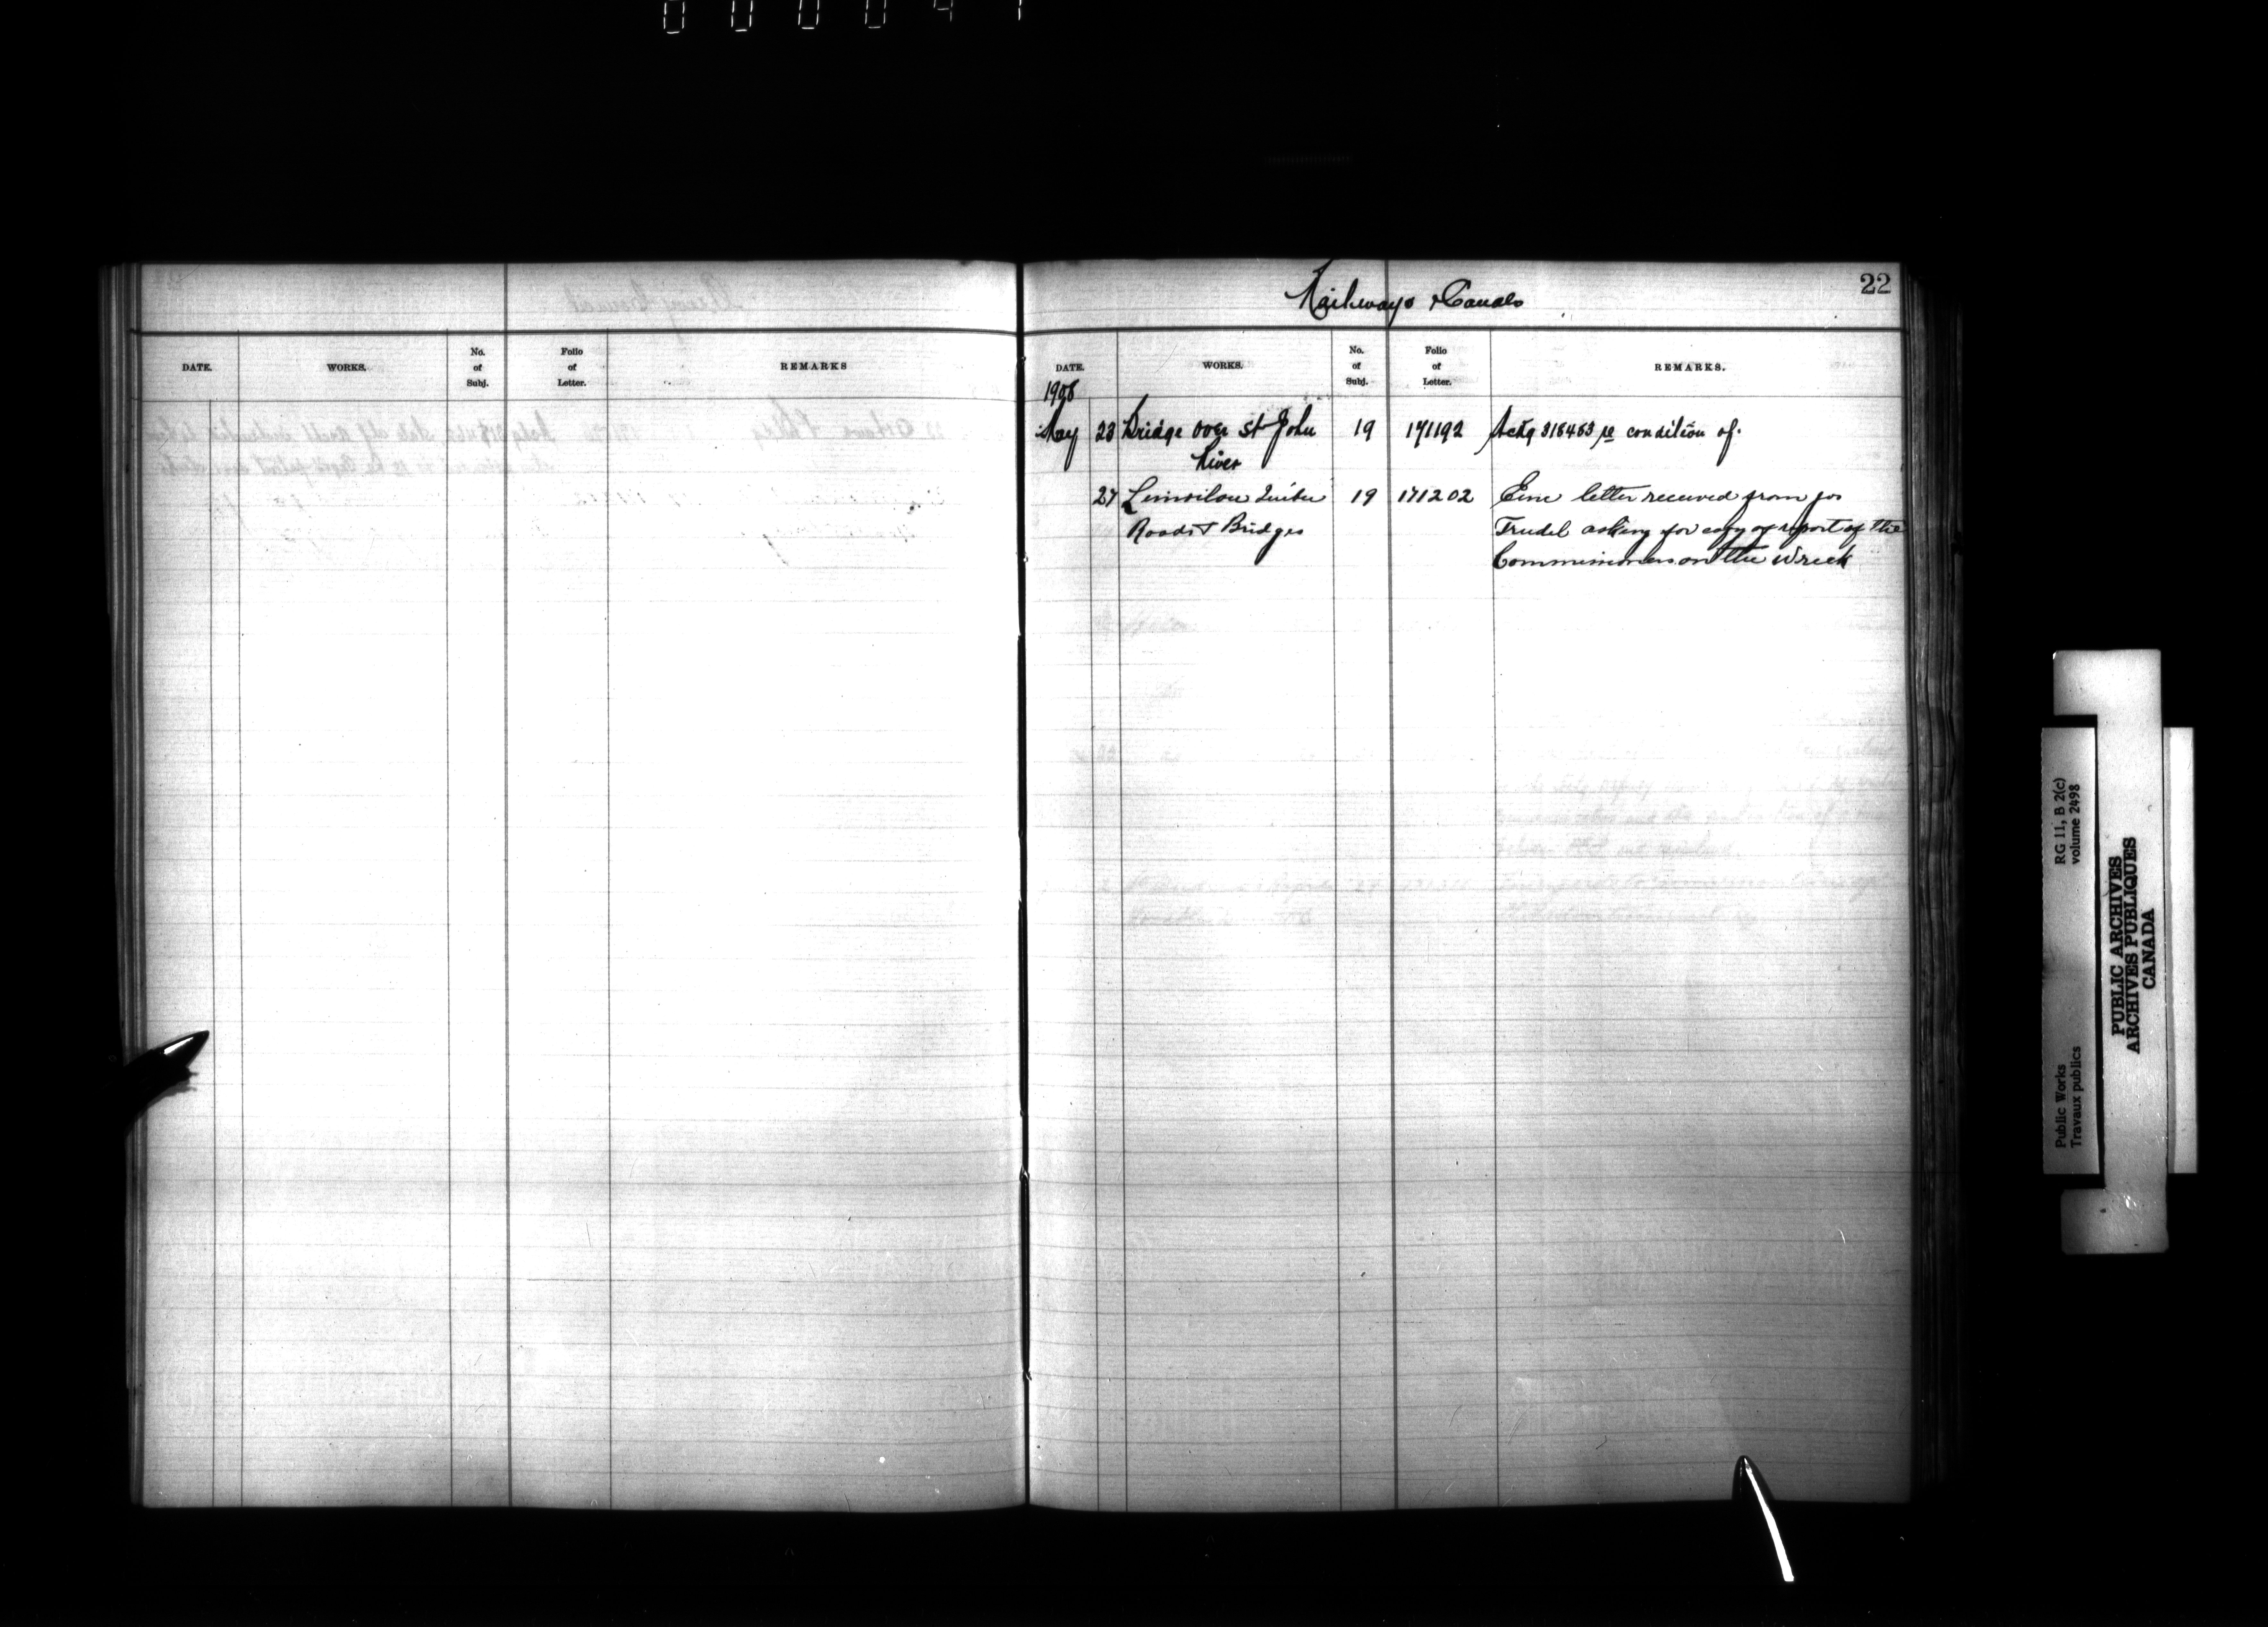 22
Railways & Canals
DATE. WORKS. No. of Subj. Folio of Letter. REMARKS
DATE. WORKS. No. of Subj. Folio of Letter. REMARKS.
1908
May 23 Bridge over St John 19 171192 Ackg 318463 re condition of.
River
27 19 171202 letter received from Jos
Roads & Bridges Trudel asking for copy of report of the
Commissioners on the wreck
RG 11, B 2(c)
volume 2498
Public Works
Travaux publics
PUBLIC ARCHIVES
ARCHIVES PUBLIQUES
CANADA